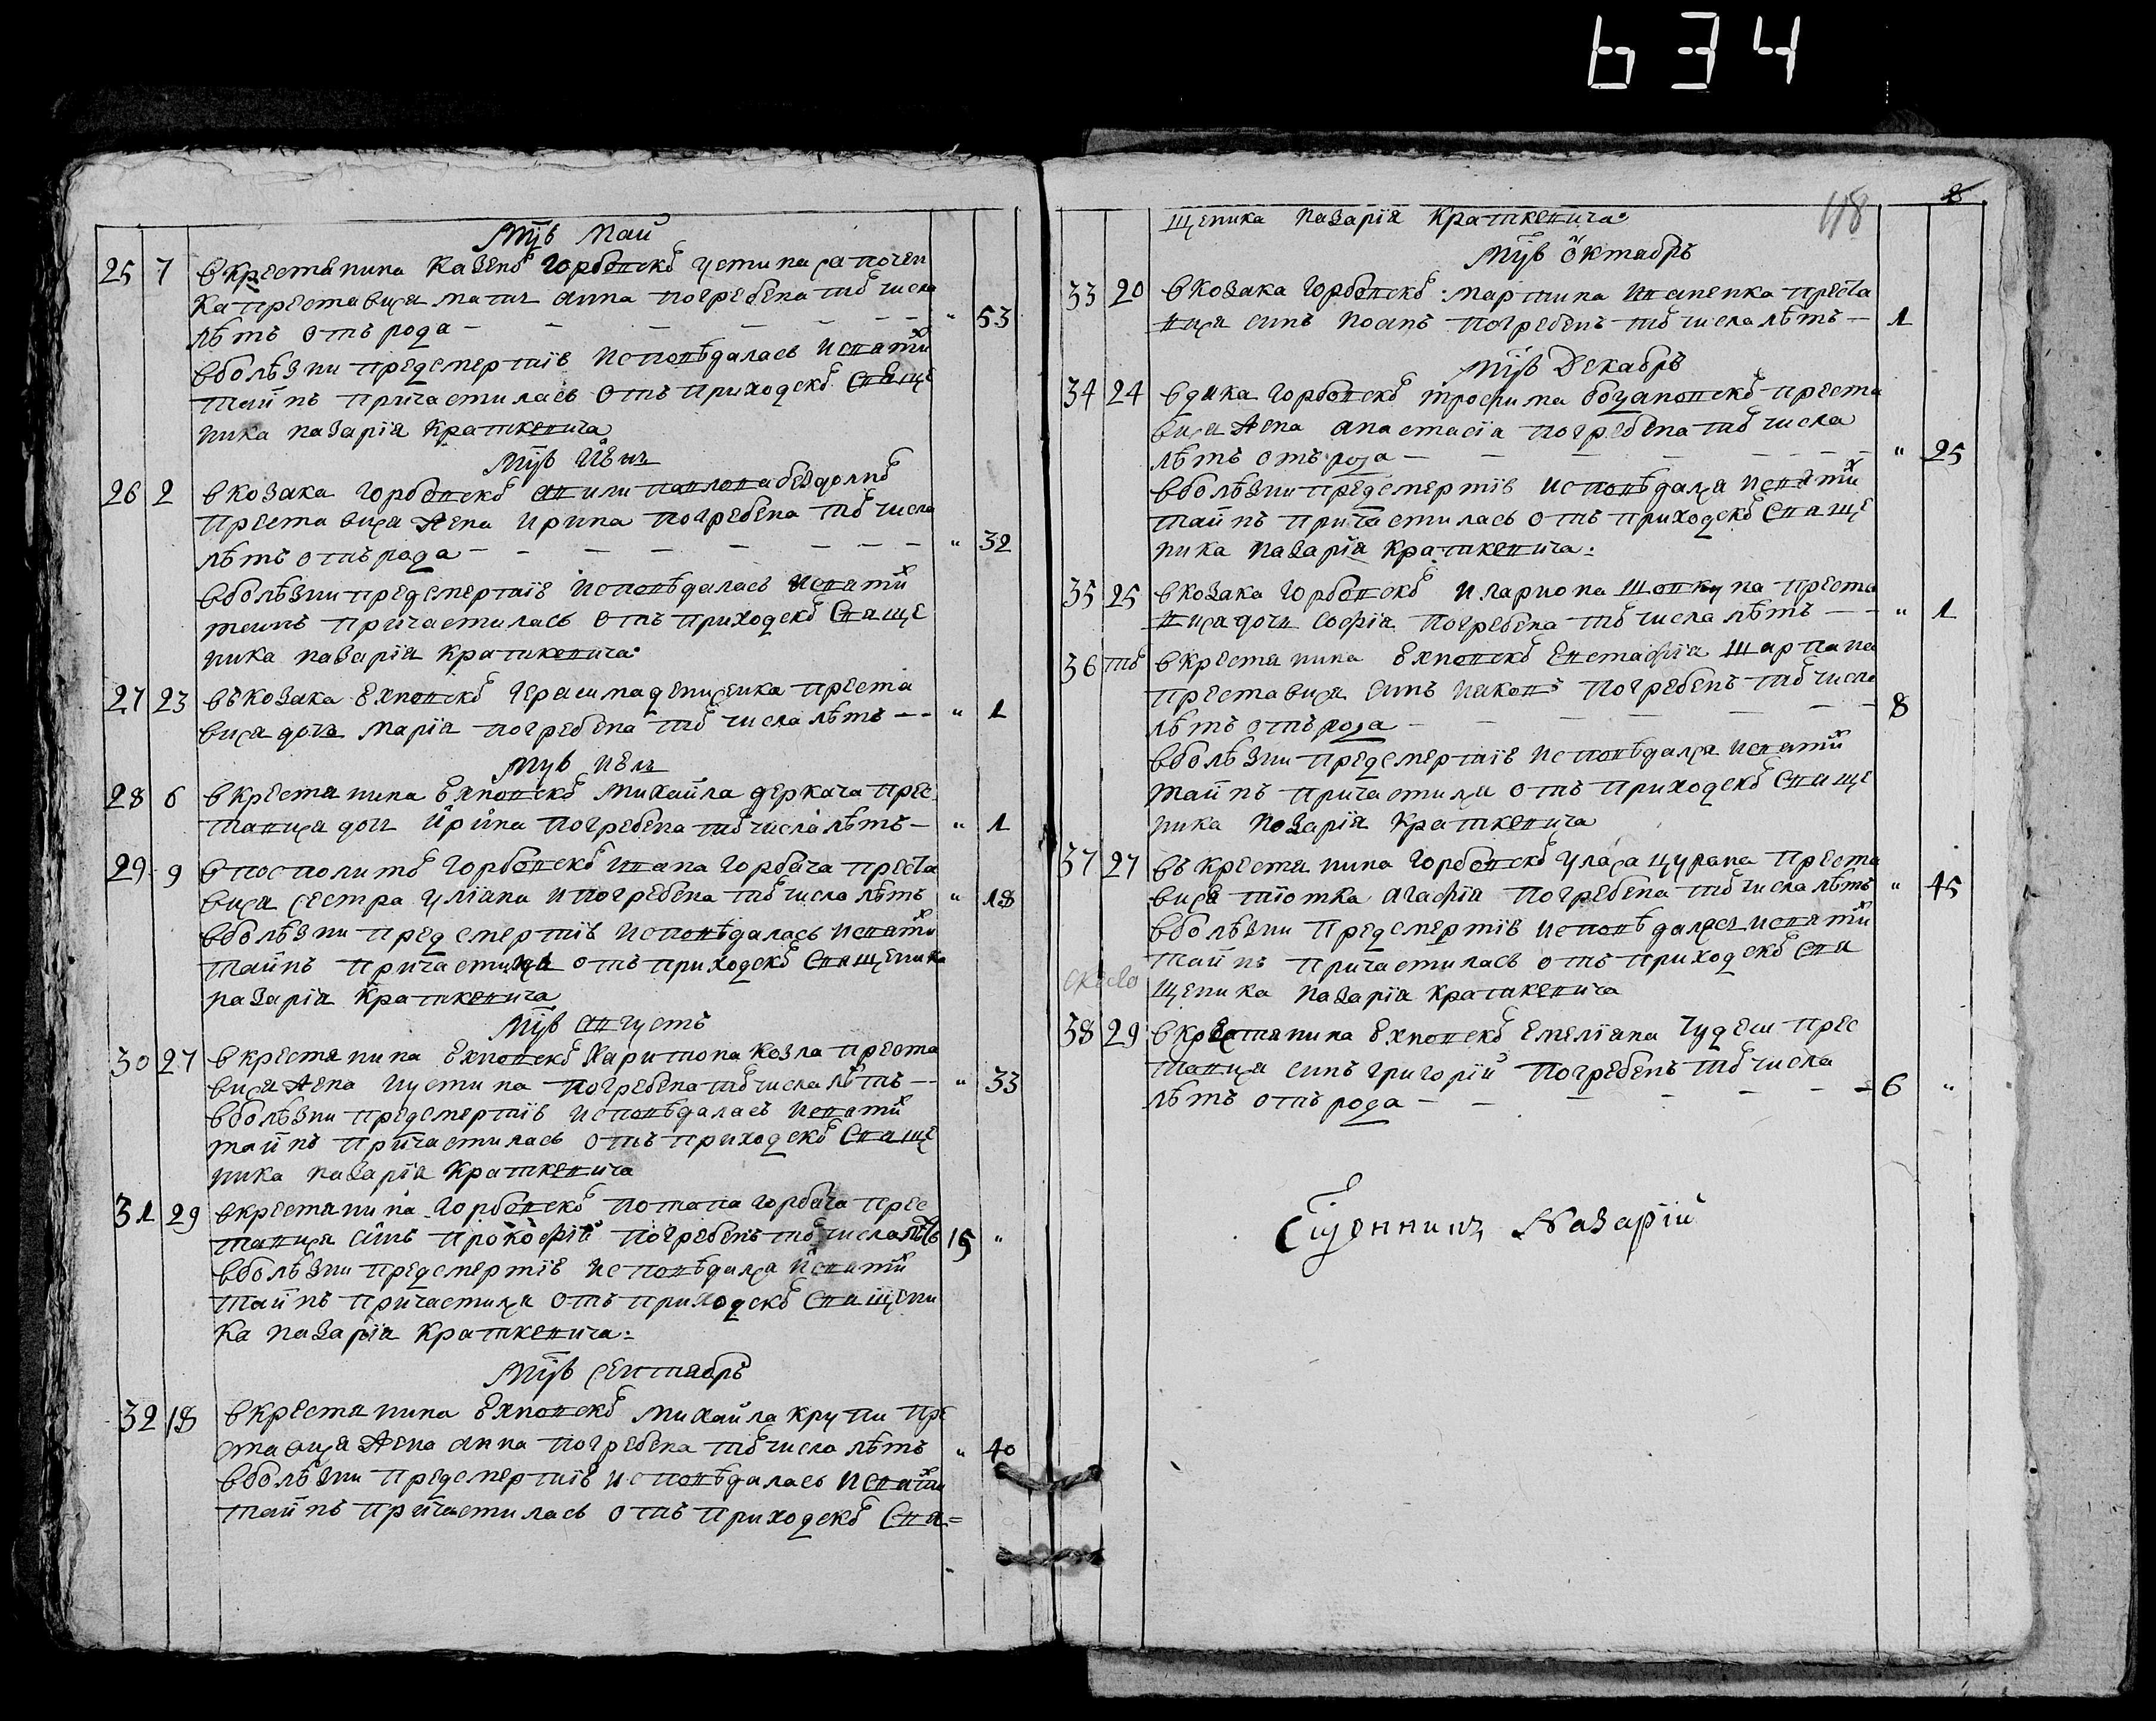 634
мцъ май
25 7 в крестянина казенъ горбовскъ устина сапочен
ка преставися мати анна погребена тогъ числа
лѣтъ отъ рода — — — — — — — " 53
вболѣзни предсмертіѣ исповѣдалась исвятих
тайнъ причастилась отъ приходскъ свяще
ника назарія Краткевича
мцъ июнь
26 2 в козака горбовскъ
преставися жена ирина погребена тогъ числа
лѣтъ отъ рода — — — — — — — " 32
вболѣзни предсмертіѣ исповѣдалась исвятих
таинъ причастилась отъ приходскъ свяще
ника назарія Краткевича
27 23 въ козака герасима денисенка преста
вися дочь марія погребена тогъ числа лѣтъ — — " 1
мцъ июль
28 6 в крестянина михайла деркача прес
тавися дочь ирина погребена тогъ числа лѣтъ — " 1
29 9 в посполитъ горбовскъ ивана горбача преста
вися сестра уліяна и погребена тогъ числа лѣтъ " 18
вболѣзни предсмертіѣ исповѣдалась исвятих
тайнъ причастися отъ приходскъ священика
назарія Краткевича
мцъ августъ
30 27 в крестянина харитона козла преста
вися жена иустина погребена тогъ числа лѣтъ — " 33
вболѣзни предсмертіѣ исповѣдалась исвятих
тайнъ причастилась отъ приходскъ свяще
ника назарія Краткевича
31 29 в крестянина горбовскъ потапа горбача прес
тавися синъ прокофій погребенъ тогъ числа лѣтъ 15 "
вболѣзни предсмертіѣ исповѣдася исвятих
тайнъ причастися отъ приходскъ священи
ка назарія Краткевича:
мцъ сентябръ
32 18 в крестянина михайла крупи пре
ставися жена анна погребена тогъ числа лѣтъ " 40
вболѣзни предсмертіѣ исповѣдалась исвятих
тайнъ причастилась отъ приходскъ свя=
118
щеника назарія Краткевича:
мцъ октябръ
33 20 в козака горбовскъ: мартина иваненка преста
вися синъ иоанъ погребенъ тогъ числа лѣтъ — 1
мцъ декабръ
34 24 в дяка горбовскъ трофима преста
вися жена анастасія погребена тогъ числа
лѣтъ отъ рода — — — — — — " 25
вболѣзни предсмертіѣ исповѣдася исвятих
тайнъ причастилась отъ приходскъ свяще
ника назарія Краткевича:
35 25 в козака горбовскъ иларіона преста
вися дочь софія погребена тогъ числа лѣтъ — — " 1
36 тъ в крестянина евстафія шарпана
преставися синъ иаковъ погребенъ тогъ числа
лѣтъ отъ рода — — — — — — 8
вболѣзни предсмертіѣ исповѣдася исвятих
тайнъ причастися отъ приходскъ свяще
ника назарія Краткевича
37 27 въ крестянина горбовскъ уласа цурана преста
вися тіотка агафія погребена тогъ числа лѣтъ " 45
вболѣзни предсмертіѣ исповѣдалась исвятих
тайнъ причастилась отъ приходскъ свя
щеника назарія Краткевича
38 29 в крестянина емеліана чудеши прес
тавися синъ григорій погребенъ тогъ числа
лѣтъ отъ рода — — — — — — 6 "
Сщенникъ Назарій